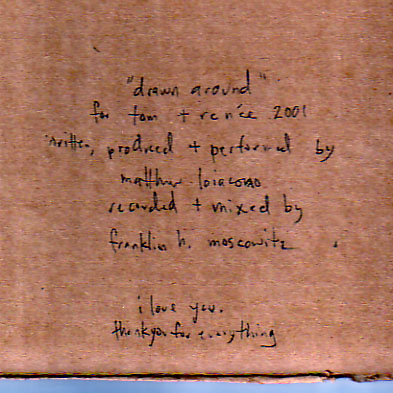 "drawn around"
for tom + renée 2001
written, produced + performed by
matthew loiacono
recorded + mixed by
franklin h. moscowitz
i love you.
thankyou for everything